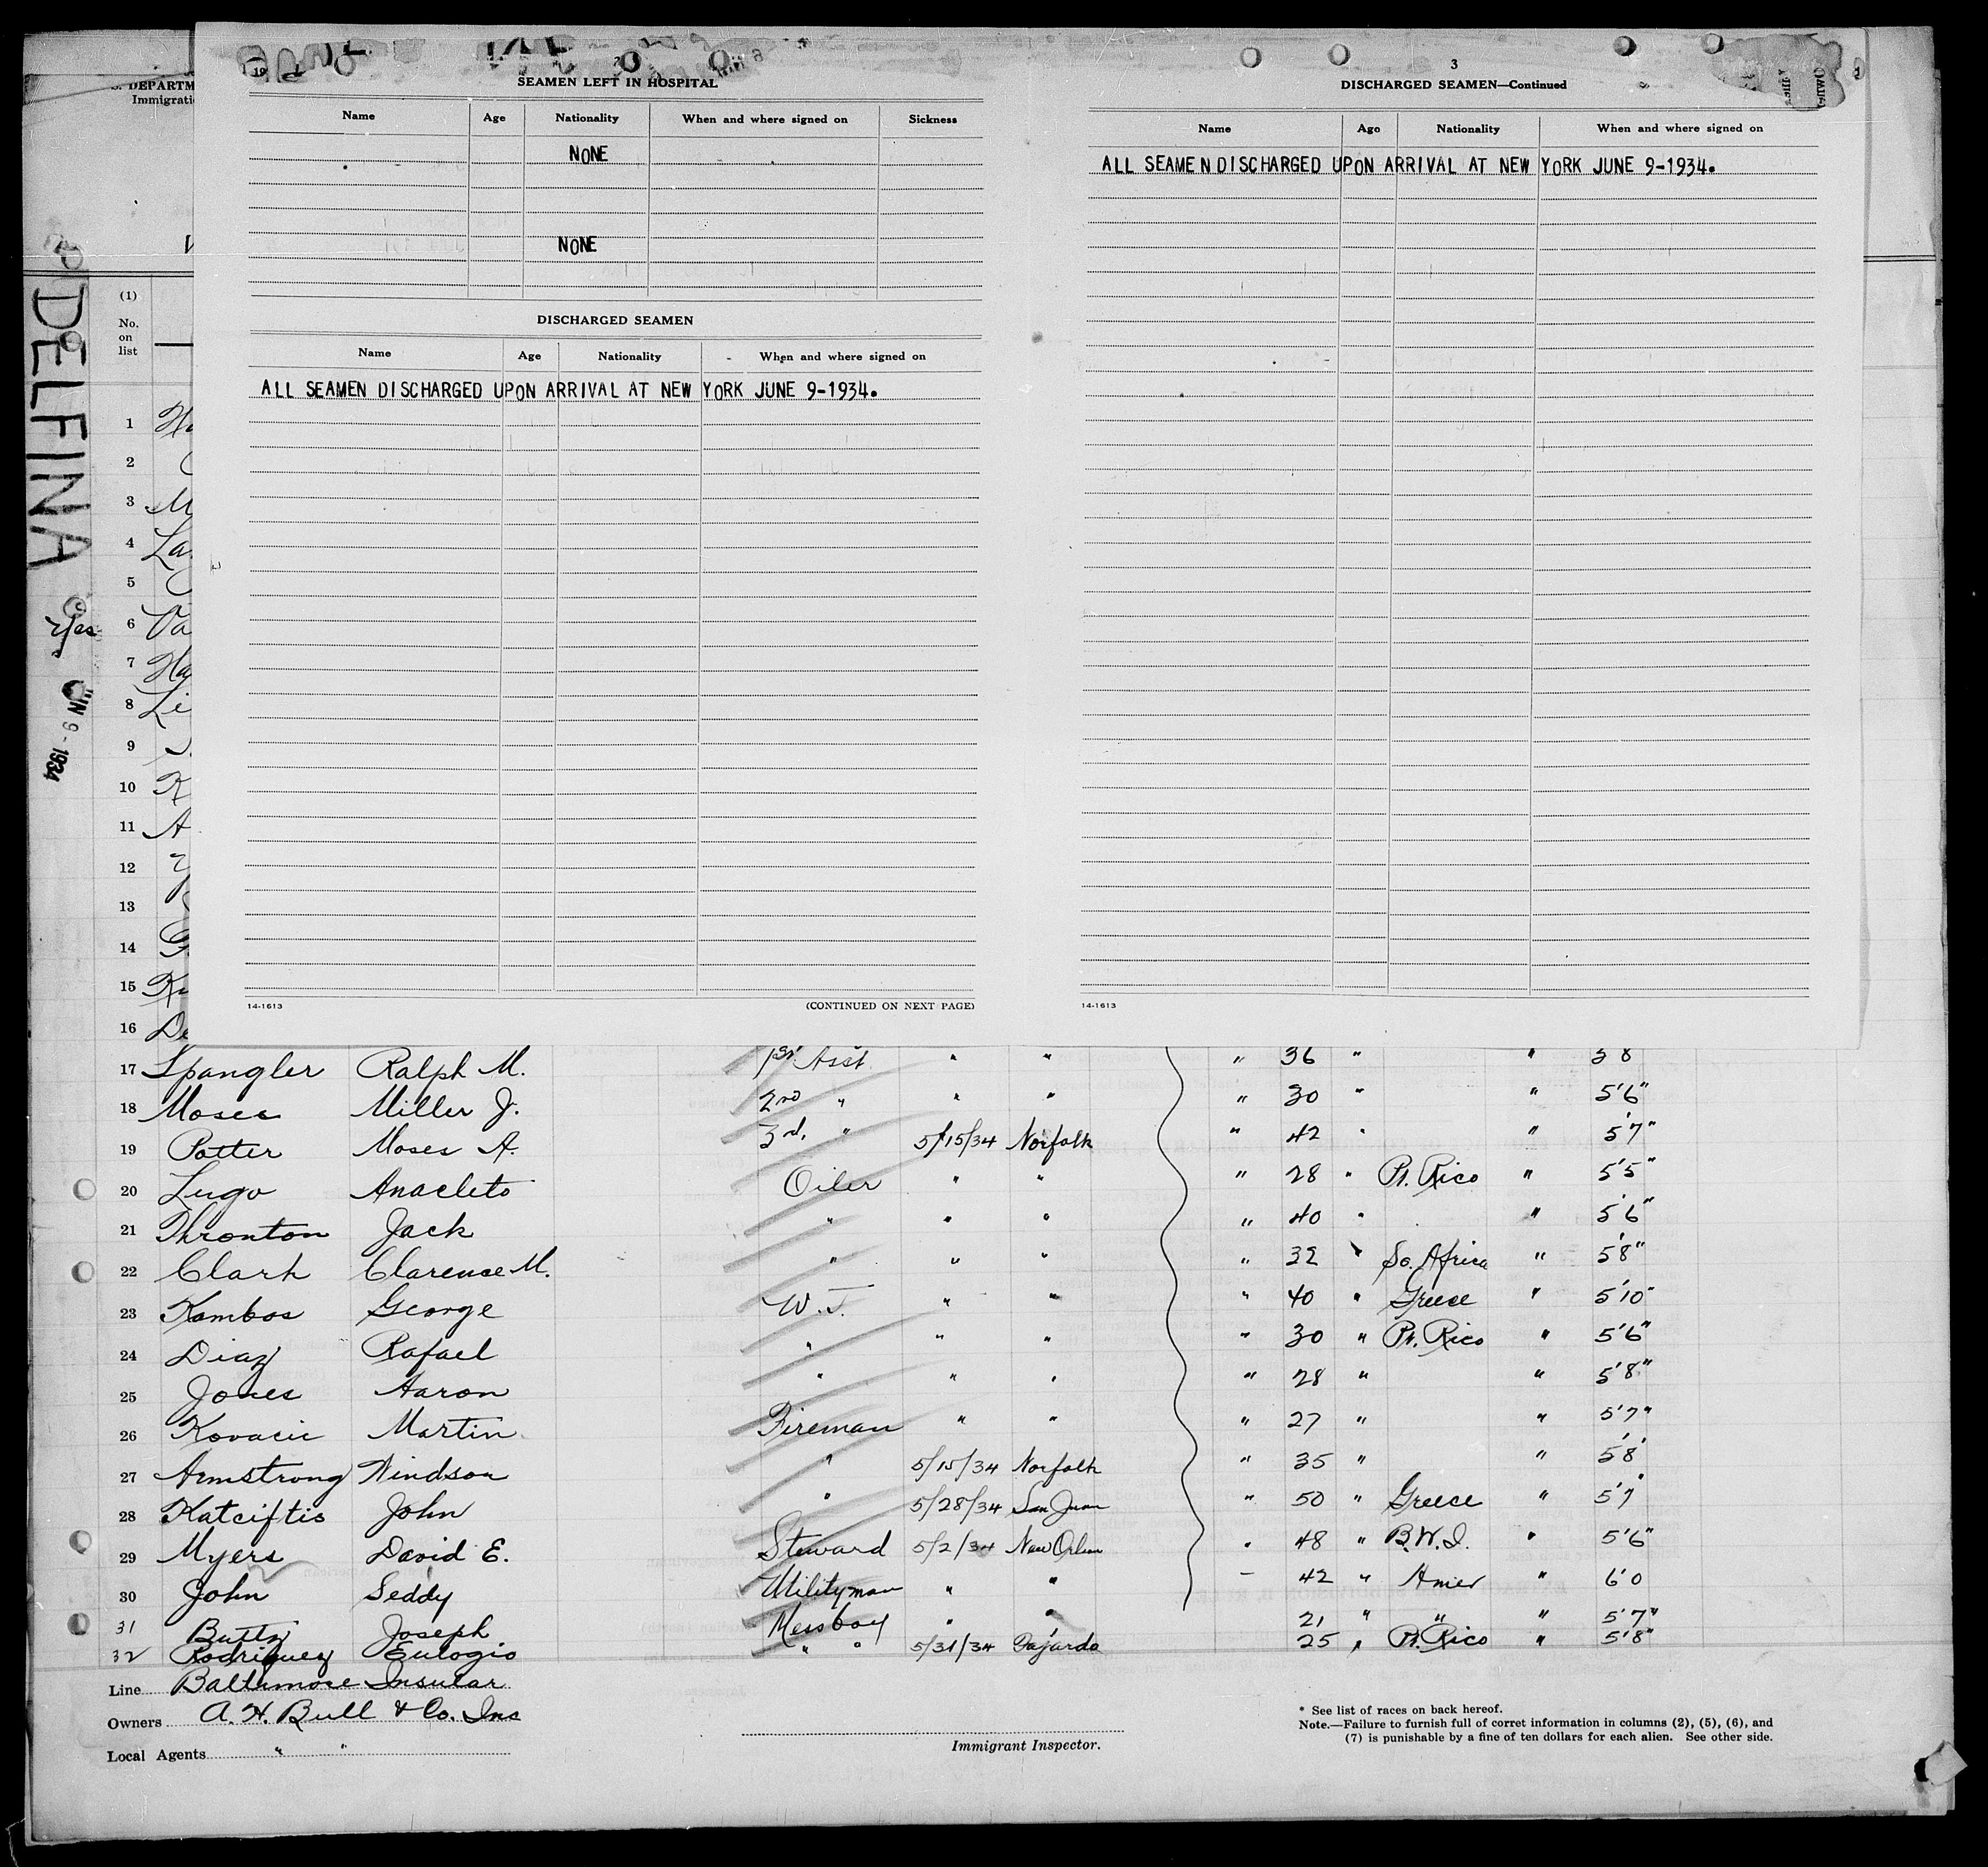 SEAMEN LEFT IN HOSPITAL
Name Age Nationality When and where signed on Sickness
NONE
NONE
DISCHARGED SEAMEN
Name Age Nationality When and where signed on
ALL SEAMEN DISCHARGED UPON ARRIVAL AT NEW YORK JUNE 9-1934.
14-1613 (CONTINUED ON NEXT PAGE)
3
DISCHARGED SEAMEN—Continued
Name Age Nationality When and where signed on
ALL SEAMEN DISCHARGED UPON ARRIVAL AT NEW YORK JUNE 9-1934.
14-1613
DEPARTM
Immigrati
DELFINA
Yes
9-1934
(1)
No.
on
list
1
2
3 M
4 La
5
6 Va
7 Ha
8 Li
9
10 K
11 A
12
13
14 G
15
16 De
17 Spangler Ralph M. 1st Asst. " " " 36 " " 5'8
18 Moses Miller J. 2nd " " " " 30 " " 5'6"
19 Potter Moses A. 3rd. " 5/15/34 Norfolk " 42 " " 5'7"
20 Lugo Anacleto Oiler " " " 28 " Pt. Rico " 5'5"
21 Thronton Jack " " " " 40 " " 5'6"
22 Clark Clarence M. " " " " 32 " So. Africa " 5'8"
23 Kambos George W.T. " " " 40 " Greece " 5'10"
24 Diaz Rafael " " " " 30 " Pt. Rico " 5'6"
25 Jones Aaron " " " " 28 " " 5'8"
26 Kovacic Martin Fireman " " " 27 " " 5'7"
27 Armstrong Windsor " 5/15/34 Norfolk " 35 " " 5'8'
28 Katciftis John " 5/28/34 San Juan " 50 " Greece " 5'7"
29 Myers David E. Steward 5/2/34 New Orlean " 48 " B.W.I. " 5'6"
30 John Seddy Utilityman " " " 42 " Amer " 6'0
31 Buttz Joseph Messboy " " 21 " " " 5'7"
32 Rodriguez Eulogio " " 5/31/34 Fajardo 25 " Pt. Rico " 5'8"
Line Baltimore Insular
Owners A. H. Bull & Co. Inc
Local Agents " "
Immigrant Inspector.
* See list of races on back hereof.
Note.—Failure to furnish full of corret information in columns (2), (5), (6), and
(7) is punishable by a fine of ten dollars for each alien. See other side.